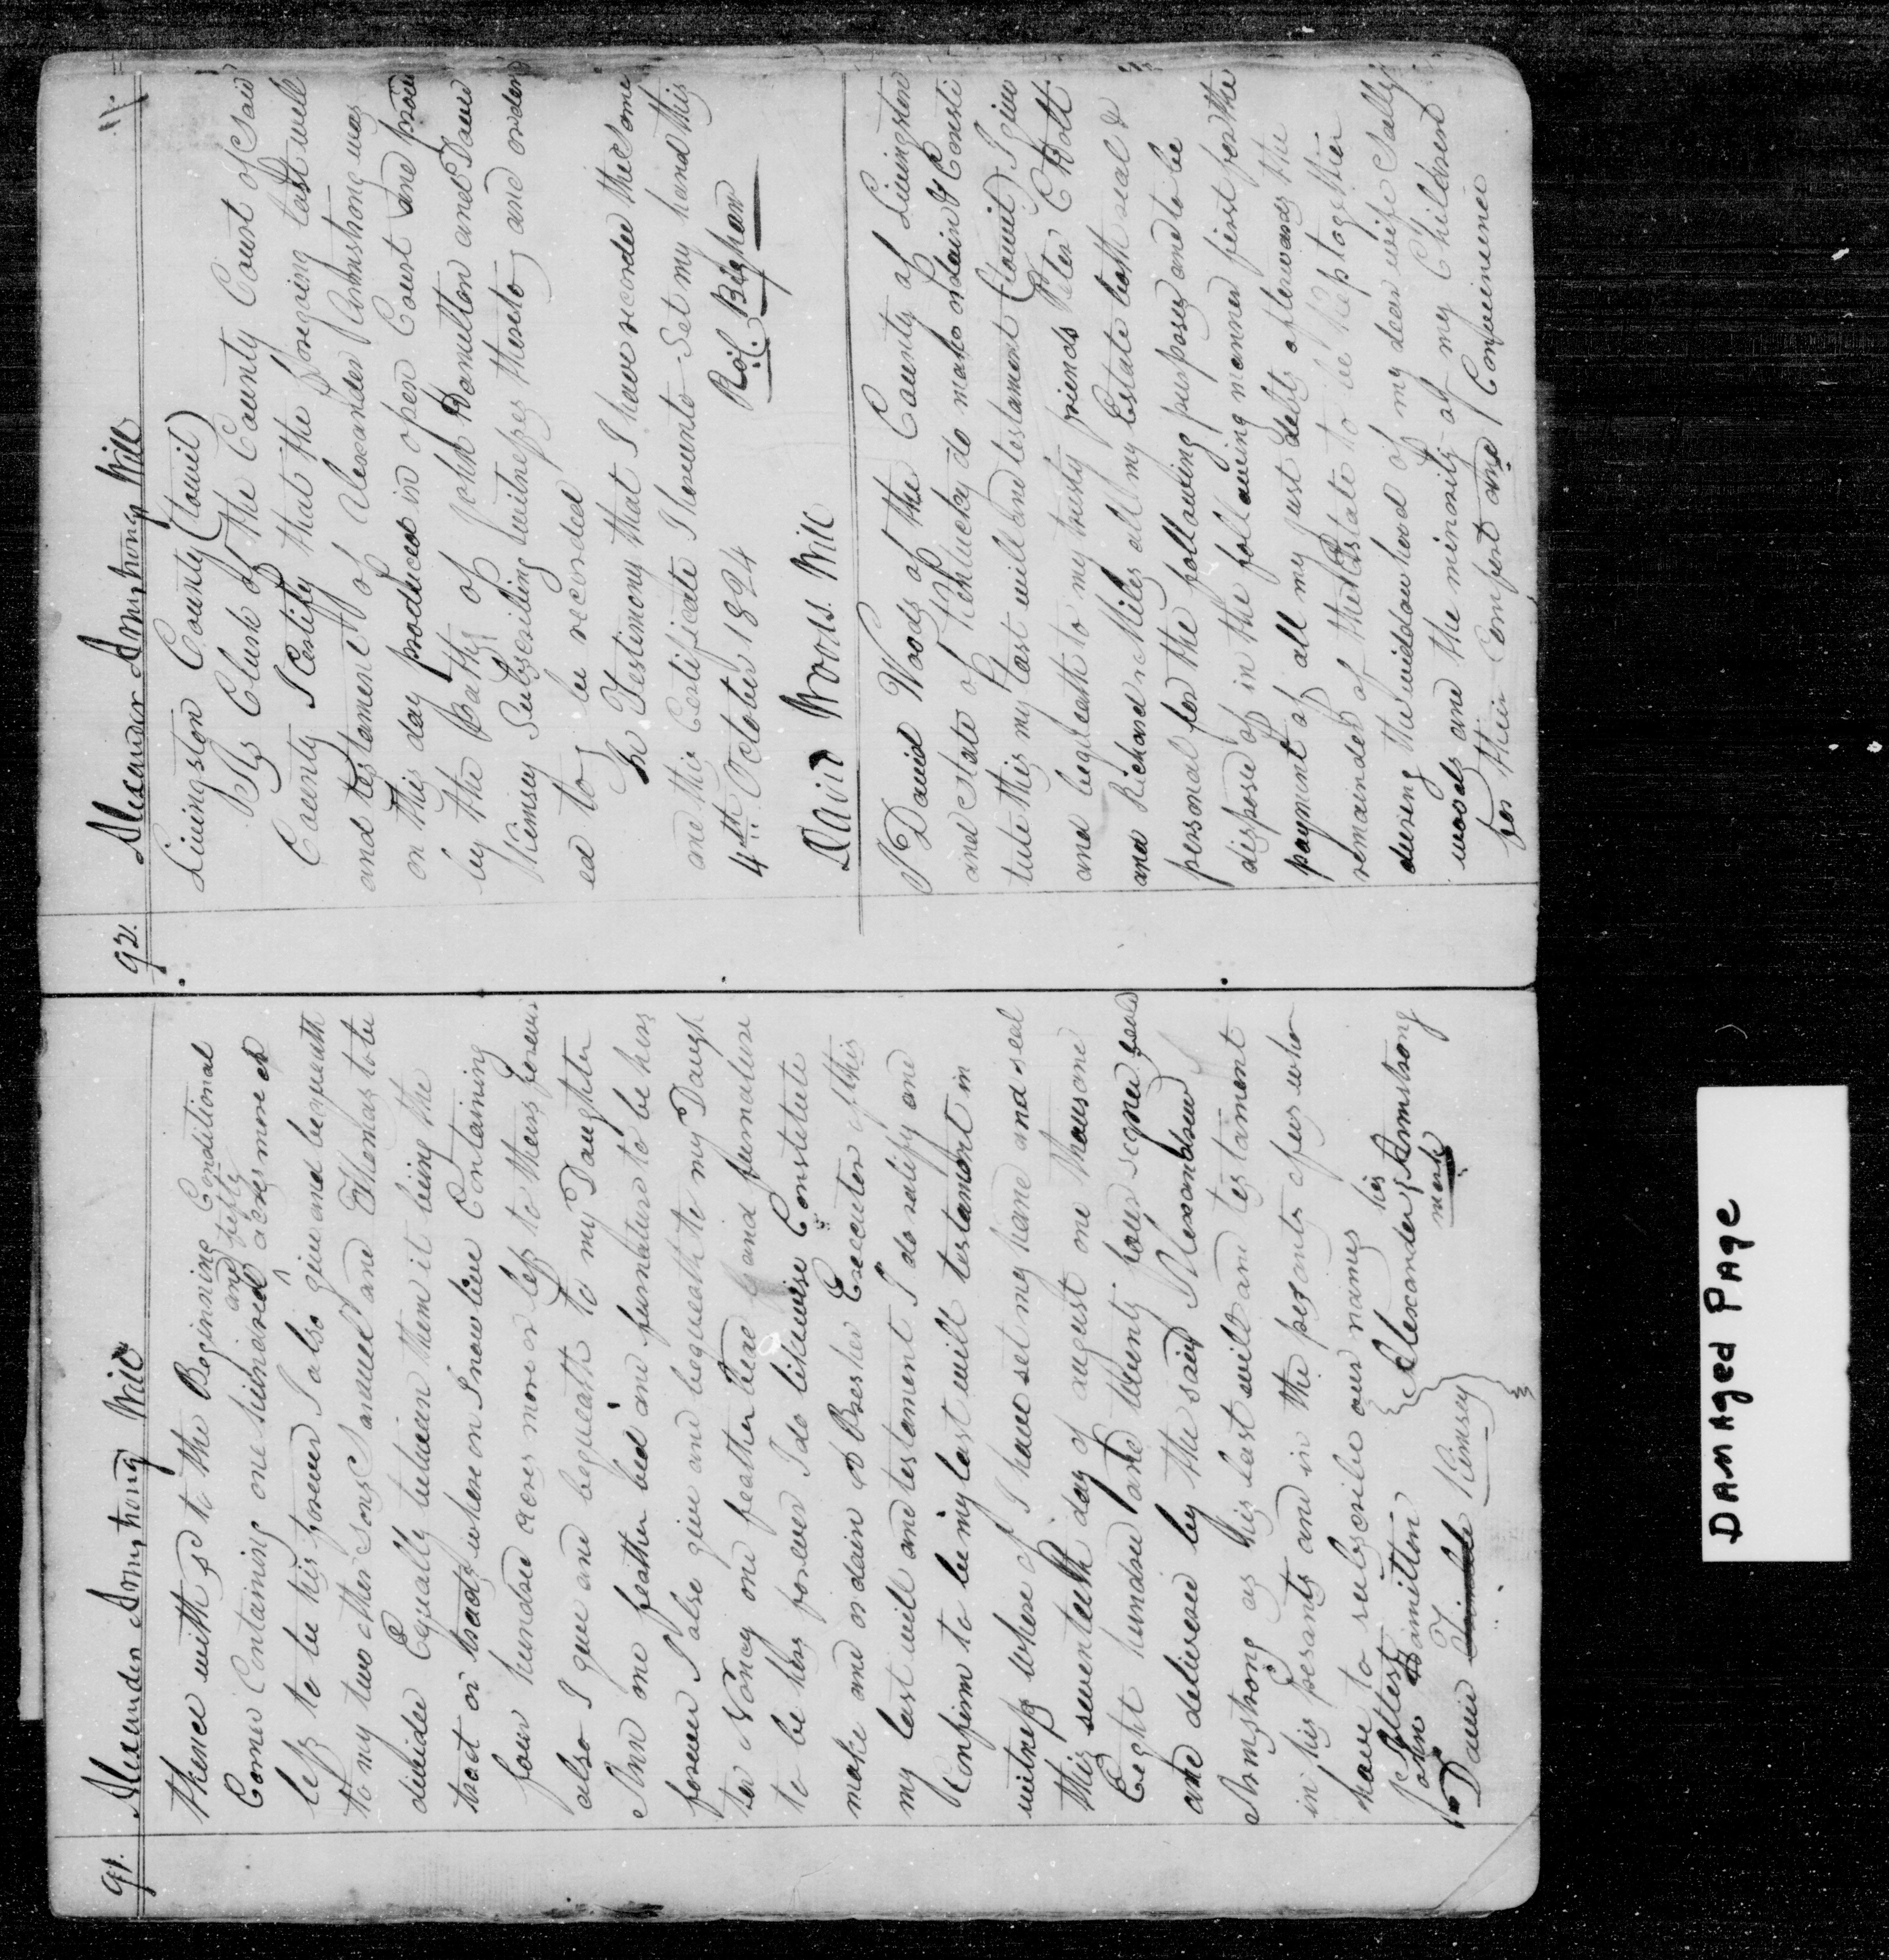 91. Alexander Armstrong Will
thence with sd to the Beginning Conditional
and fifty
Corner Containing one hundred ^ acres more or
less to be his forever I also give and bequeath
to my two other Sons Samuel and Thomas to be
divided Equally between them it being the
tract or tracts where on I now live Containing
four hundred acres more or less to theirs forever
also I give and bequeath to my Daughter
Ann one feather bed and furnature to be hers
forever I also give and bequeath to my Daugh
ter Nancy one feather bed and furnature
to be hers forever I do likewise Constitute
make and ordain Executor of this
my last will and testament I do ratify and
Confirm to be my last will testament in
witness where of I have set my hand and seal
this seventeeth day of august one thousand
Eight hundred and twenty four signed seald
and delivered by the said Alexander
Armstrong as his last will and testament
in his pesants and in the pesants of us who
have to subscribe our names his
Attest Alexander Armstrong
John Hamilton mark
David Kimsey
92. Alexander Armstrong Will
Livingston County (towit)
Clerk of the County Court of Said
County I Certify that the foregoing last will
and testament of Alexander Armstrong was
on this day produced in open Court and prov
by the oaths of John Hamilton and David
Kimsey Subscribing witnesses thereto and order
ed to be recorded
In Testimony that I have recorded the Same
and this Certificate I hereunto Set my hand this
4th October 1824
David Woods Will
I David Woods of the County of Livingston
and State of Kentucky do make ordain & Consti
tute this my last will and testament (towit) I give
and bequeath to my trusty friends Peter C
and Richard Miles all my Estate both real &
personal for the following purposes and to be
disposed of in the following manner first for the
payment of all my just debts afterwards the
remainder of the Estate to be Kept together
during the widdowhood of my deer wife Sally
woods and the minority of my Children
for their Comfort and Convinience
Damaged Page